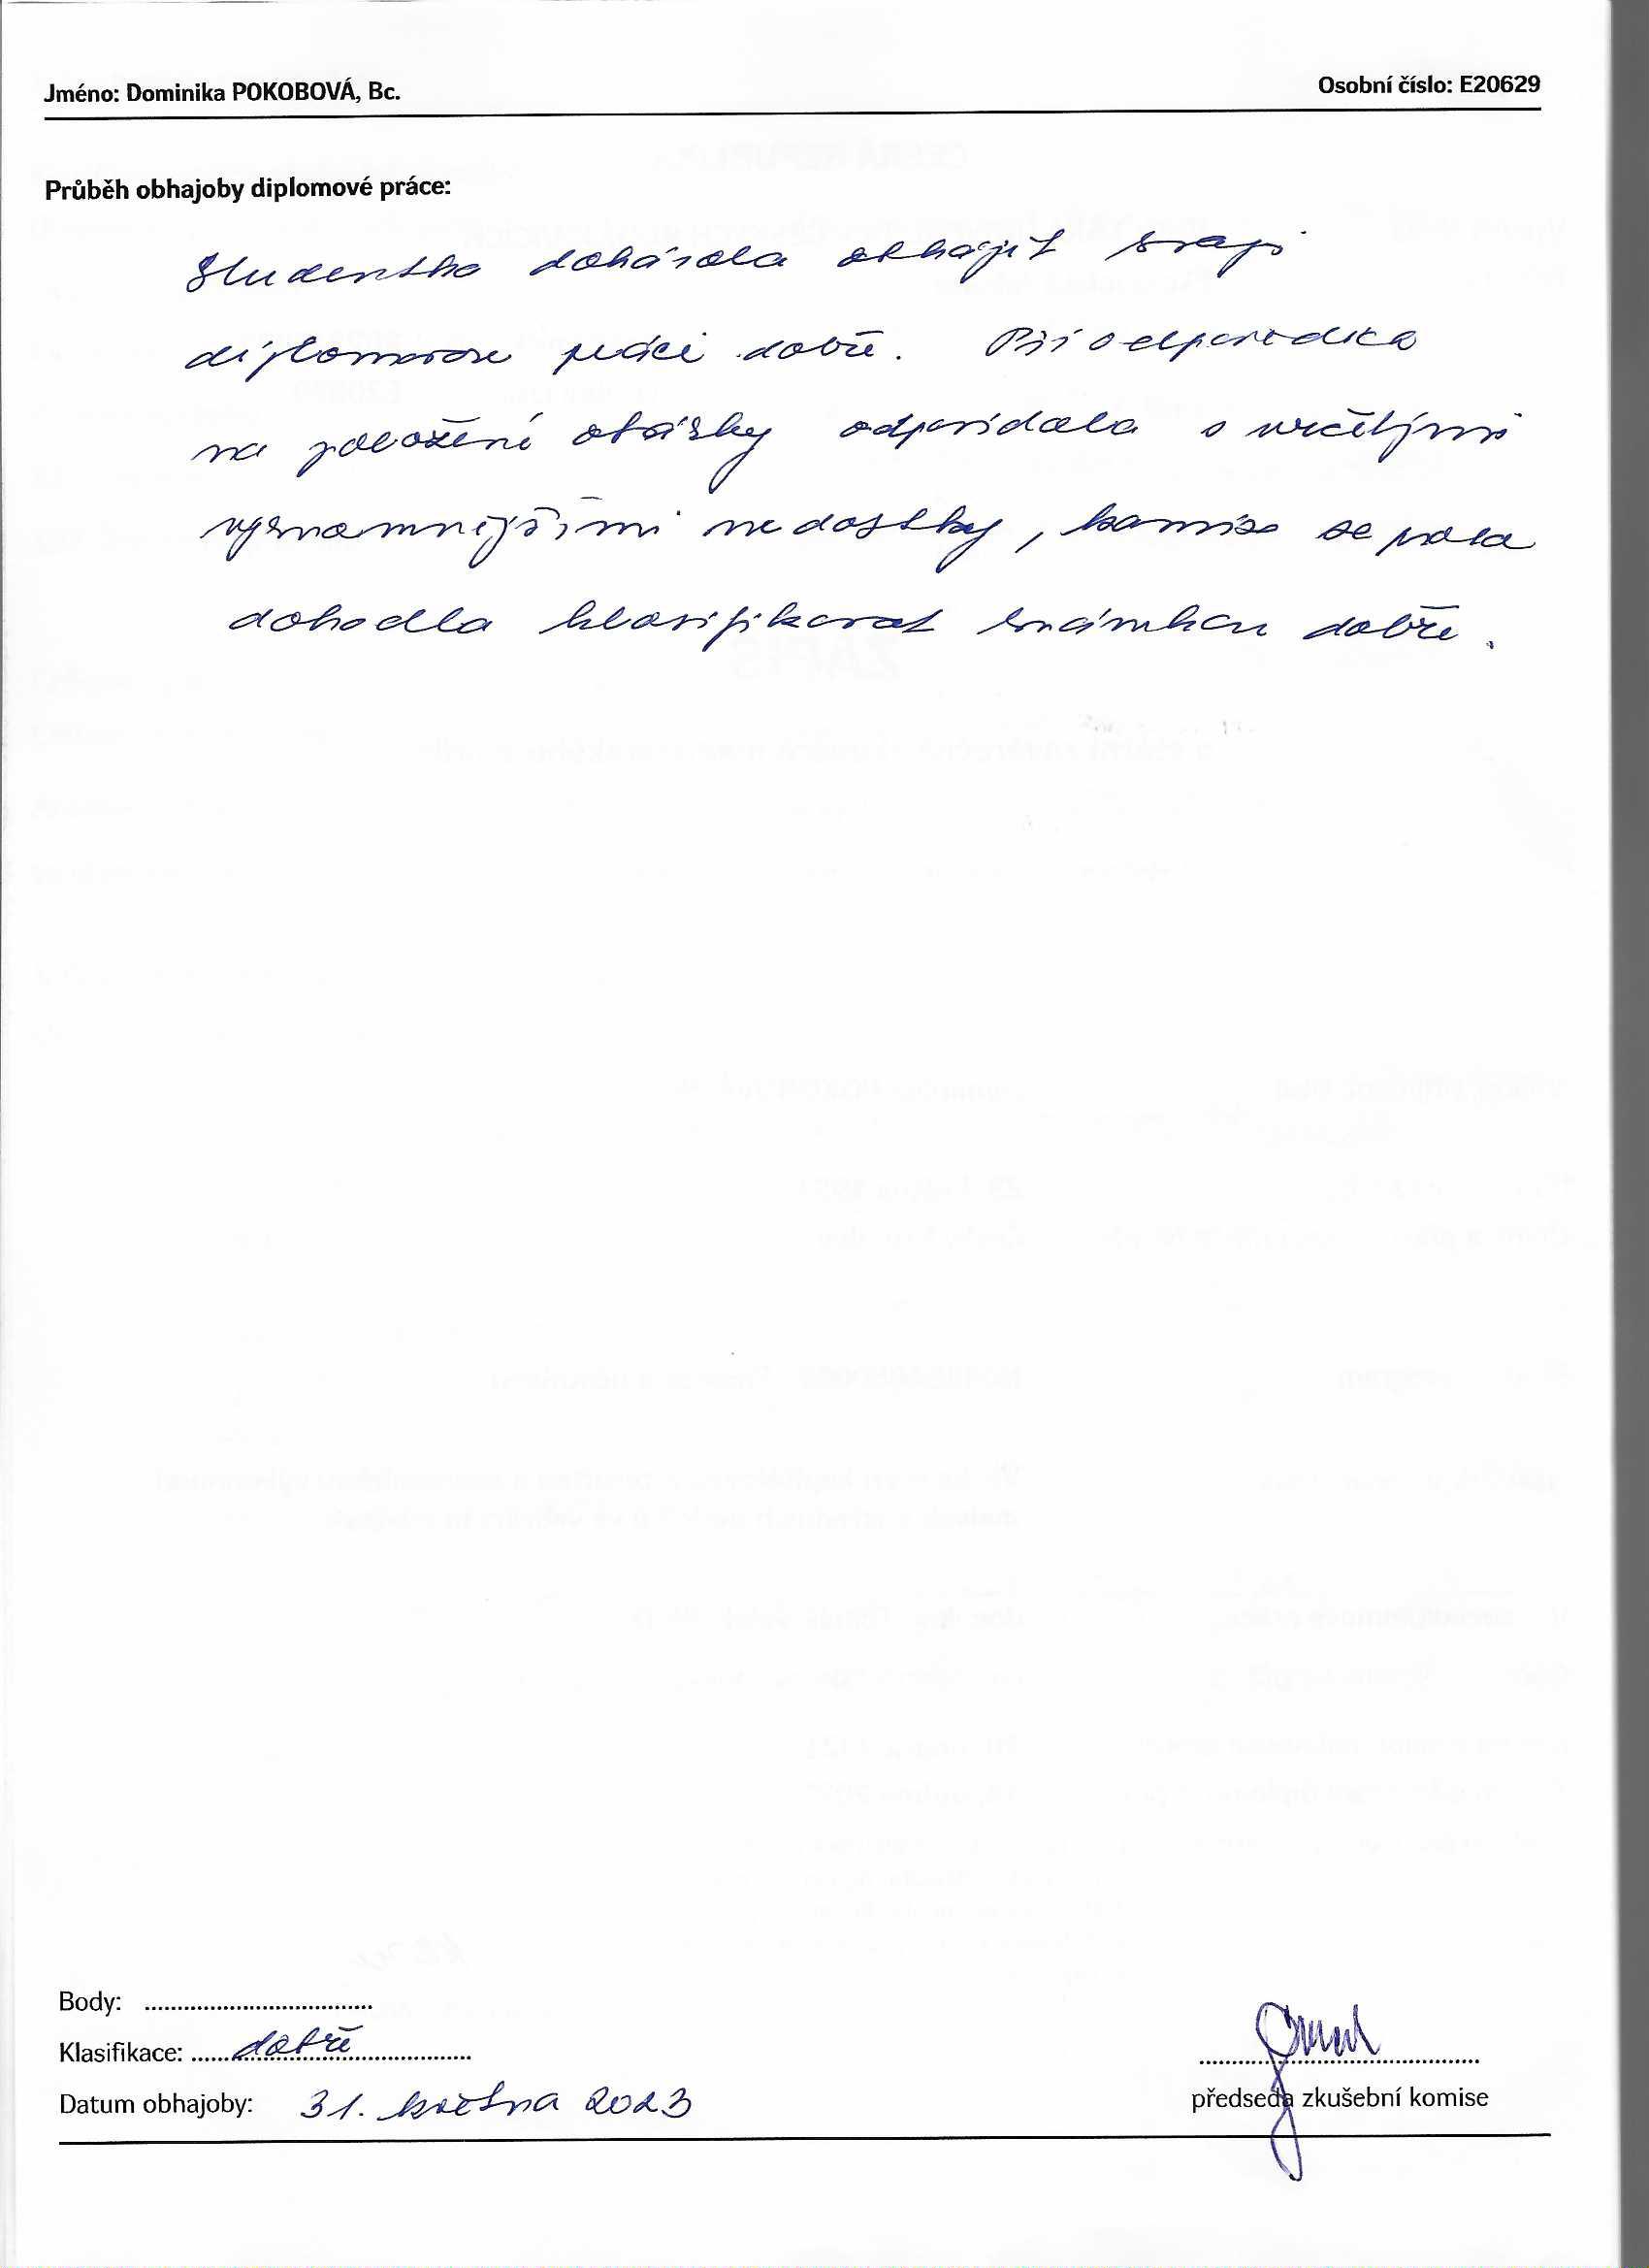 Jméno: Dominika POKOBOVÁ, Bc. Osobní číslo: E20629
Průběh obhajoby diplomové práce:
Studentka dokázala obhájit svoji
diplomovou práci dobře. Při odpovědích
na položené otázky odpovídala s určitými
významnějšími nedostky, komise se proto
dohodla klasifikovat známkou dobře.
Body:
Klasifikace: dobře
Datum obhajoby: 31. května 2023
předseda zkušební komise